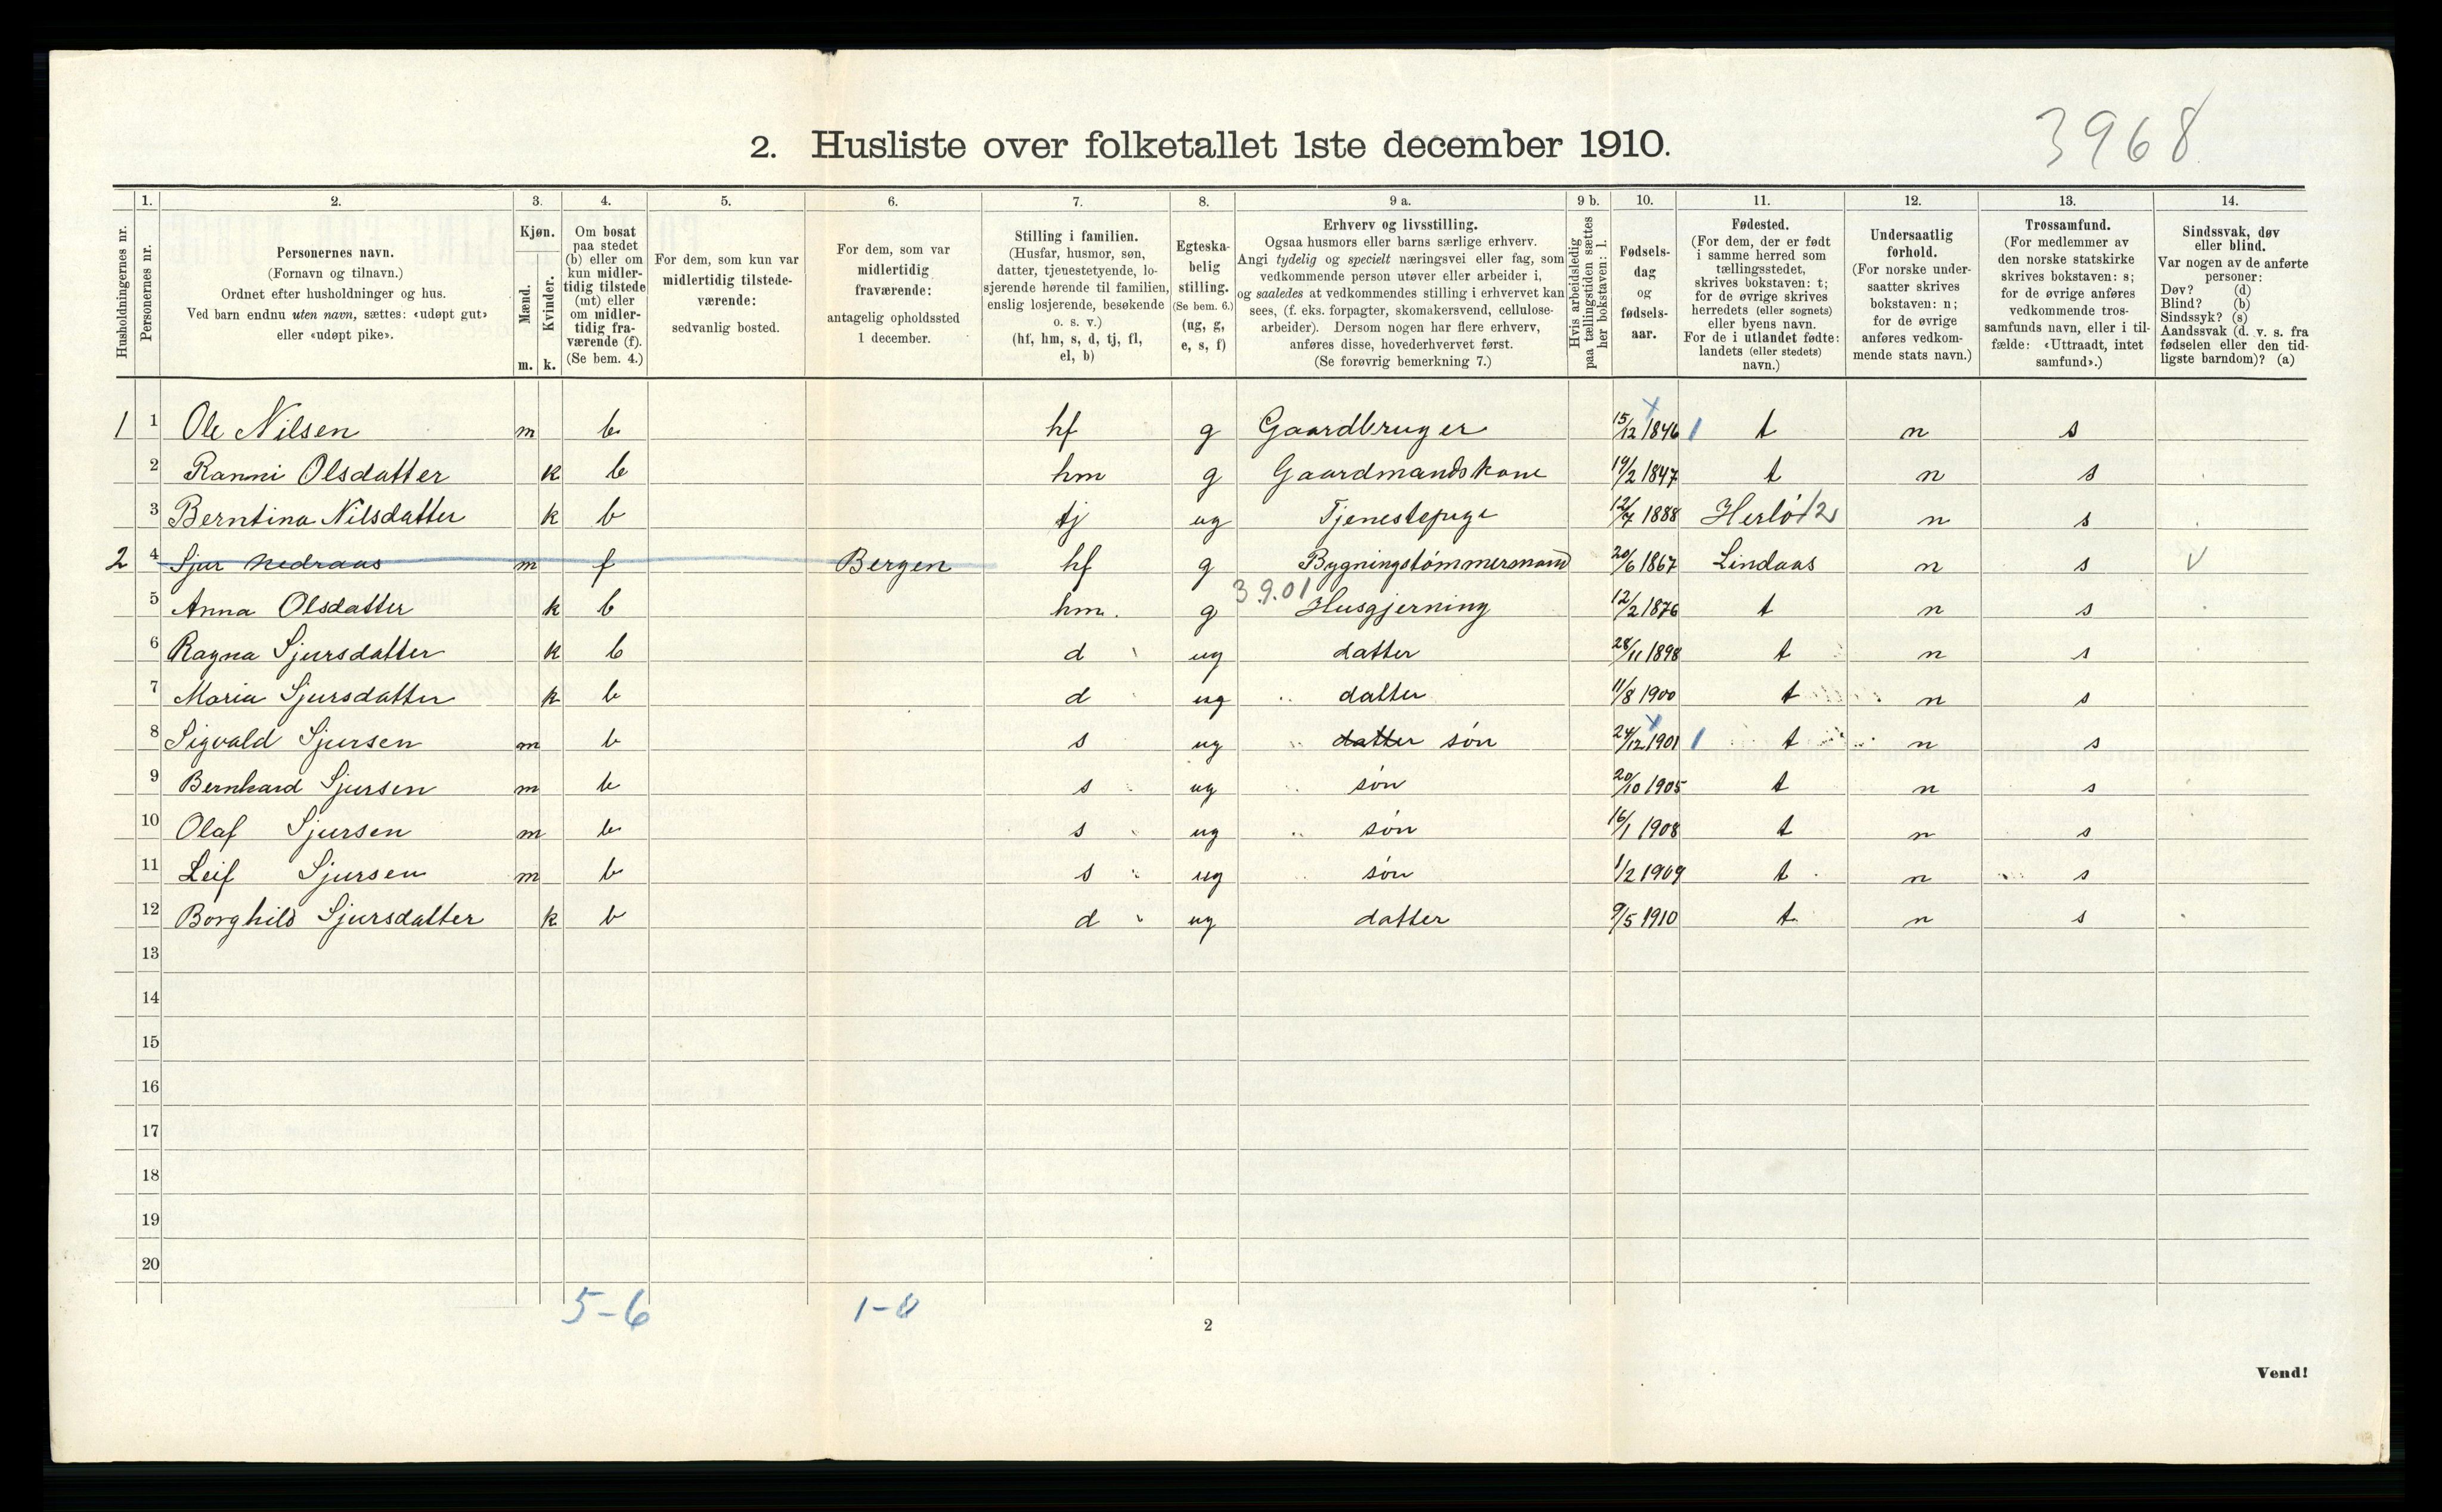 3968
2. Husliste over folketallet 1ste december 1910.
Husholdningernes nr.
1.
Personernes nr.
2.
Personernes navn.
(Fornavn og tilnavn.)
Ordnet efter husholdninger og hus.
Ved barn endnu uten navn, sættes: «udøpt gut»
eller «udøpt pike».
3.
Kjøn.
Mænd.
Kvinder.
m. k.
4.
Om bosat
paa stedet
(b) eller om
kun midler-
tidig tilstede
(mt) eller
om midler-
tidig fra-
værende (f).
(Se bem. 4.)
5.
For dem, som kun var
midlertidig tilstede-
værende:
sedvanlig bosted.
6.
For dem, som var
midlertidig
fraværende:
antagelig opholdssted
1 december.
7.
Stilling i familien.
(Husfar, husmor, søn,
datter, tjenestetyende, lo-
sjerende hørende til familien,
enslig losjerende, besøkende
o. s. v.)
(hf, hm, s, d, tj, fl,
el, b)
8.
Egteska-
belig
stilling.
(Se bem. 6.)
(ug, g,
e, s, f)
9 a.
Erhverv og livsstilling.
Ogsaa husmors eller barns særlige erhverv.
Angi tydelig og specielt næringsvei eller fag, som
vedkommende person utøver eller arbeider i,
og saaledes at vedkommendes stilling i erhvervet kan
sees, (f. eks. forpagter, skomakersvend, cellulose-
arbeider). Dersom nogen har flere erhverv,
anføres disse, hovederhvervet først.
(Se forøvrig bemerkning 7.)
9 b.
Hvis arbeidsledig
paa tællingstiden sættes
her bokstaven: l.
10.
Fødsels-
dag
og
fødsels-
aar.
11.
Fødested.
(For dem, der er født
i samme herred som
tællingsstedet,
skrives bokstaven: t;
for de øvrige skrives
herredets (eller sognets)
eller byens navn.
For de i utlandet fødte:
landets (eller stedets)
navn.)
12.
Undersaatlig
forhold.
(For norske under-
saatter skrives
bokstaven: n;
for de øvrige
anføres vedkom-
mende stats navn.)
13.
Trossamfund.
(For medlemmer av
den norske statskirke
skrives bokstaven: s;
for de øvrige anføres
vedkommende tros-
samfunds navn, eller i til-
fælde: «Uttraadt, intet
samfund».)
14.
Sindssvak, døv
eller blind.
Var nogen av de anførte
personer:
Døv? (d)
Blind? (b)
Sindssyk? (s)
Aandssvak (d. v. s. fra
fødselen eller den tid-
ligste barndom)? (a)
1 1 Ole Nilsen m b hf g Gaardbruger 15/12 1846 1 t n s
2 Ranni Olsdatter k b hm g Gaardmandskone 19/2 1847 t n s
3 Berntina Nilsdatter k b tj ug Tjenestepige 12/7 1888 Herlö 12 n s
2 4 Sjur Nedraas m f Bergen hf g Bygningstömmermand 20/6 1867 Lindaas n s V
3.9.01
5 Anna Olsdatter k b hm. g Husgjerning 12/2 1876 t n s
6 Ragna Sjursdatter k b d ug datter 28/11 1898 t n s
7 Maria Sjursdatter k b d ug datter 11/8 1900 t n s
8 Sigvald Sjursen m b s ug datter sön 24/12 1901 1 t n s
9 Bernhard Sjursen m b s ug sön 20/10 1905 t n s
10 Olaf Sjursen m b s ug sön 16/1 1908 t n s
11 Leif Sjursen m b s ug sön 1/2 1909 t n s
12 Borghild Sjursdatter k b d ug datter 9/5 1910 t n s
13
14
15
16
17
18
19
20
5-6 1-0
2
Vend!